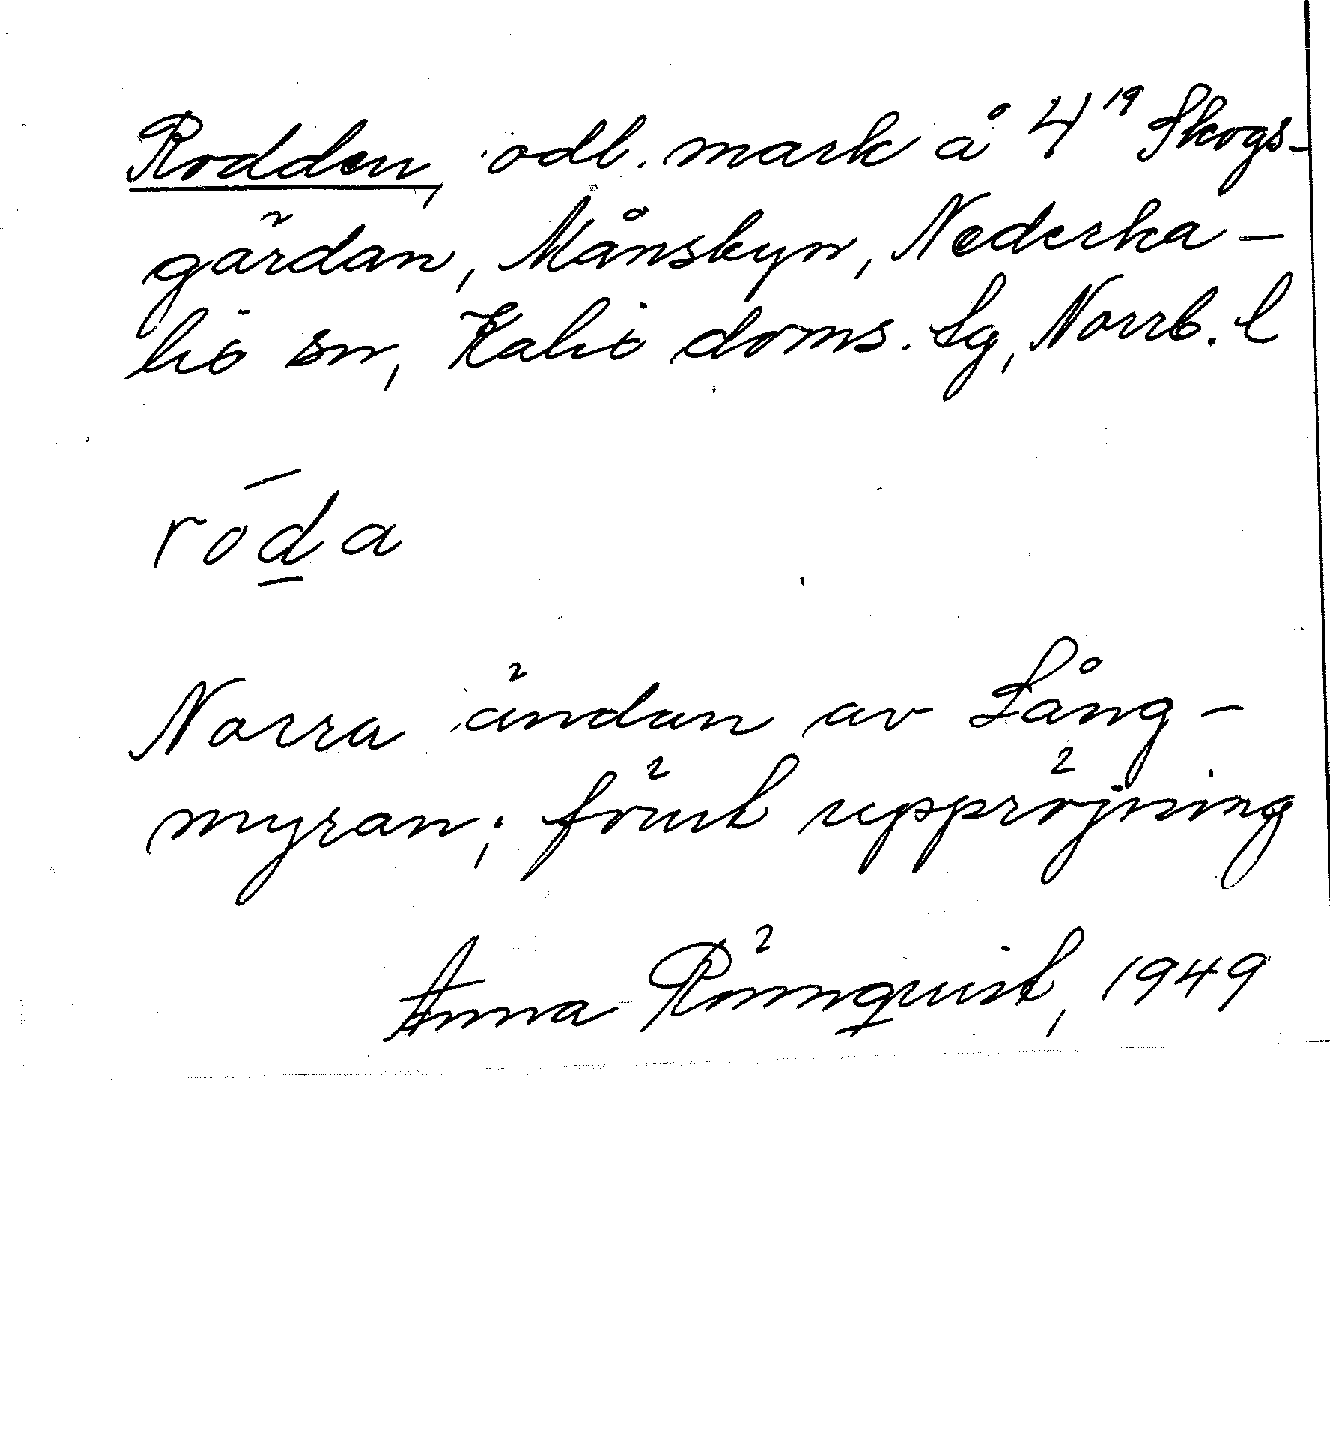 Rodden, odl. mark å 4¹⁹ Skogs-
gärdan, Månsbyn, Nederka-
lix sn, Kalix doms. lg, Norrb. l
róda
Norra ändan av Lång-
myran; först uppröjning
Anna Rönnquist, 1949